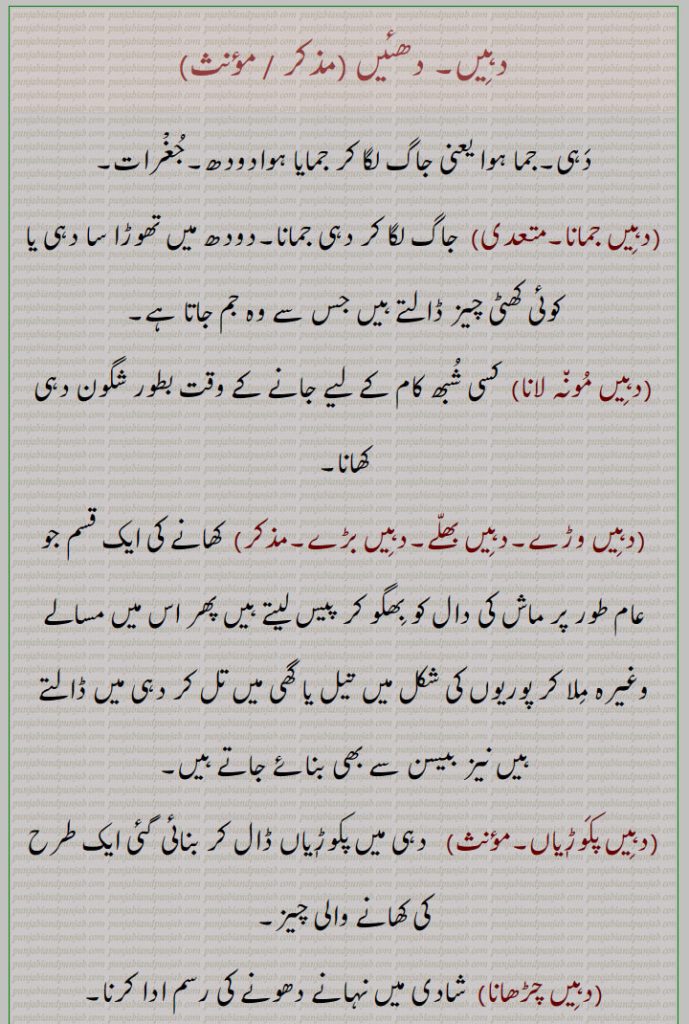 دہِیں۔ دھئیں (مذکر / مؤنث)
دَہی۔جما ہوا یعنی جاگ لگا کر جمایا ہوادودھ۔جُغرْات۔
(دہِیں جمانا۔متعدی) جاگ لگا کر دہی جمانا۔دودھ میں تھوڑا سا دہی یا
کوئی کھٹی چیز ڈالتے ہیں جس سے وہ جم جاتا ہے۔
(دہِیں مُونّہ لانا) کسی شُبھ کام کے لیے جانے کے وقت بطور شگون دہی
کھانا۔
(دہِیں وڑے۔دہِیں بھلّے۔دہِیں بڑے۔مذکر) کھانے کی ایک قسم جو
عام طور پر ماش کی دال کو بِھگو کر پیس لیتے ہیں پھر اس میں مسالے
وغیرہ مِلا کر پوریوں کی شکل میں تیل یا گھی میں تل کر دہی میں ڈالتے
ہیں نیز بیسن سے بھی بنائے جاتے ہیں۔
(دہِیں پکَوڑِیاں۔مؤنث) دہی میں پکوڑیاں ڈال کر بنائی گئی ایک طرح
کی کھانے والی چیز۔
(دہِیں چڑھانا) شادی میں نہانے دھونے کی رسم ادا کرنا۔